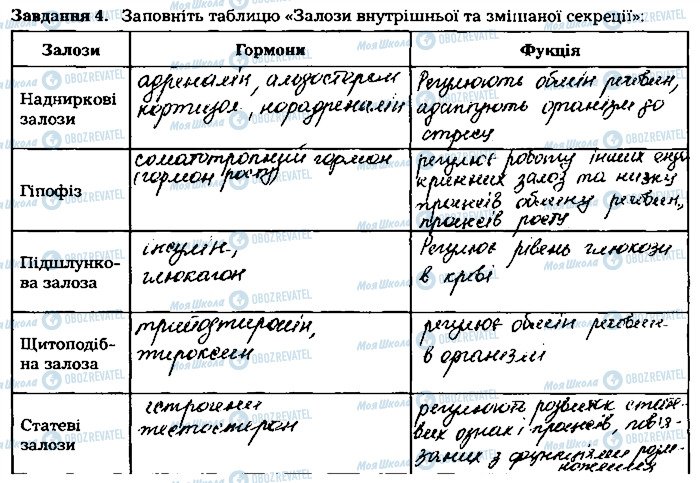 Завдання 4. Заповніть таблицю «Залози внутрішньої та змішаної секреції»:
Залози Гормони Фукція
Надниркові
залози
адреналін, альдостерон
кортизол, норадреналін
Регулюють обмін речовин,
адаптують організм до
стресу
Гіпофіз
соматотропний гормон
(гормон росту)
регулює роботу інших ендо
кринних залоз та низку
процесів обміну речовин,
процесів росту
Підшлунко-
ва залоза
інсулін,
глюкагон
Регулює рівень глюкози
в крові
Щитоподіб-
на залоза
трийодтиронін,
тироксин
регулює обмін речовин
в організмі
Статеві
залози
естрогени
тестостерон
регулюють розвиток стате-
вих ознак і процесів, пов'я-
заних з функціями розм-
ноження